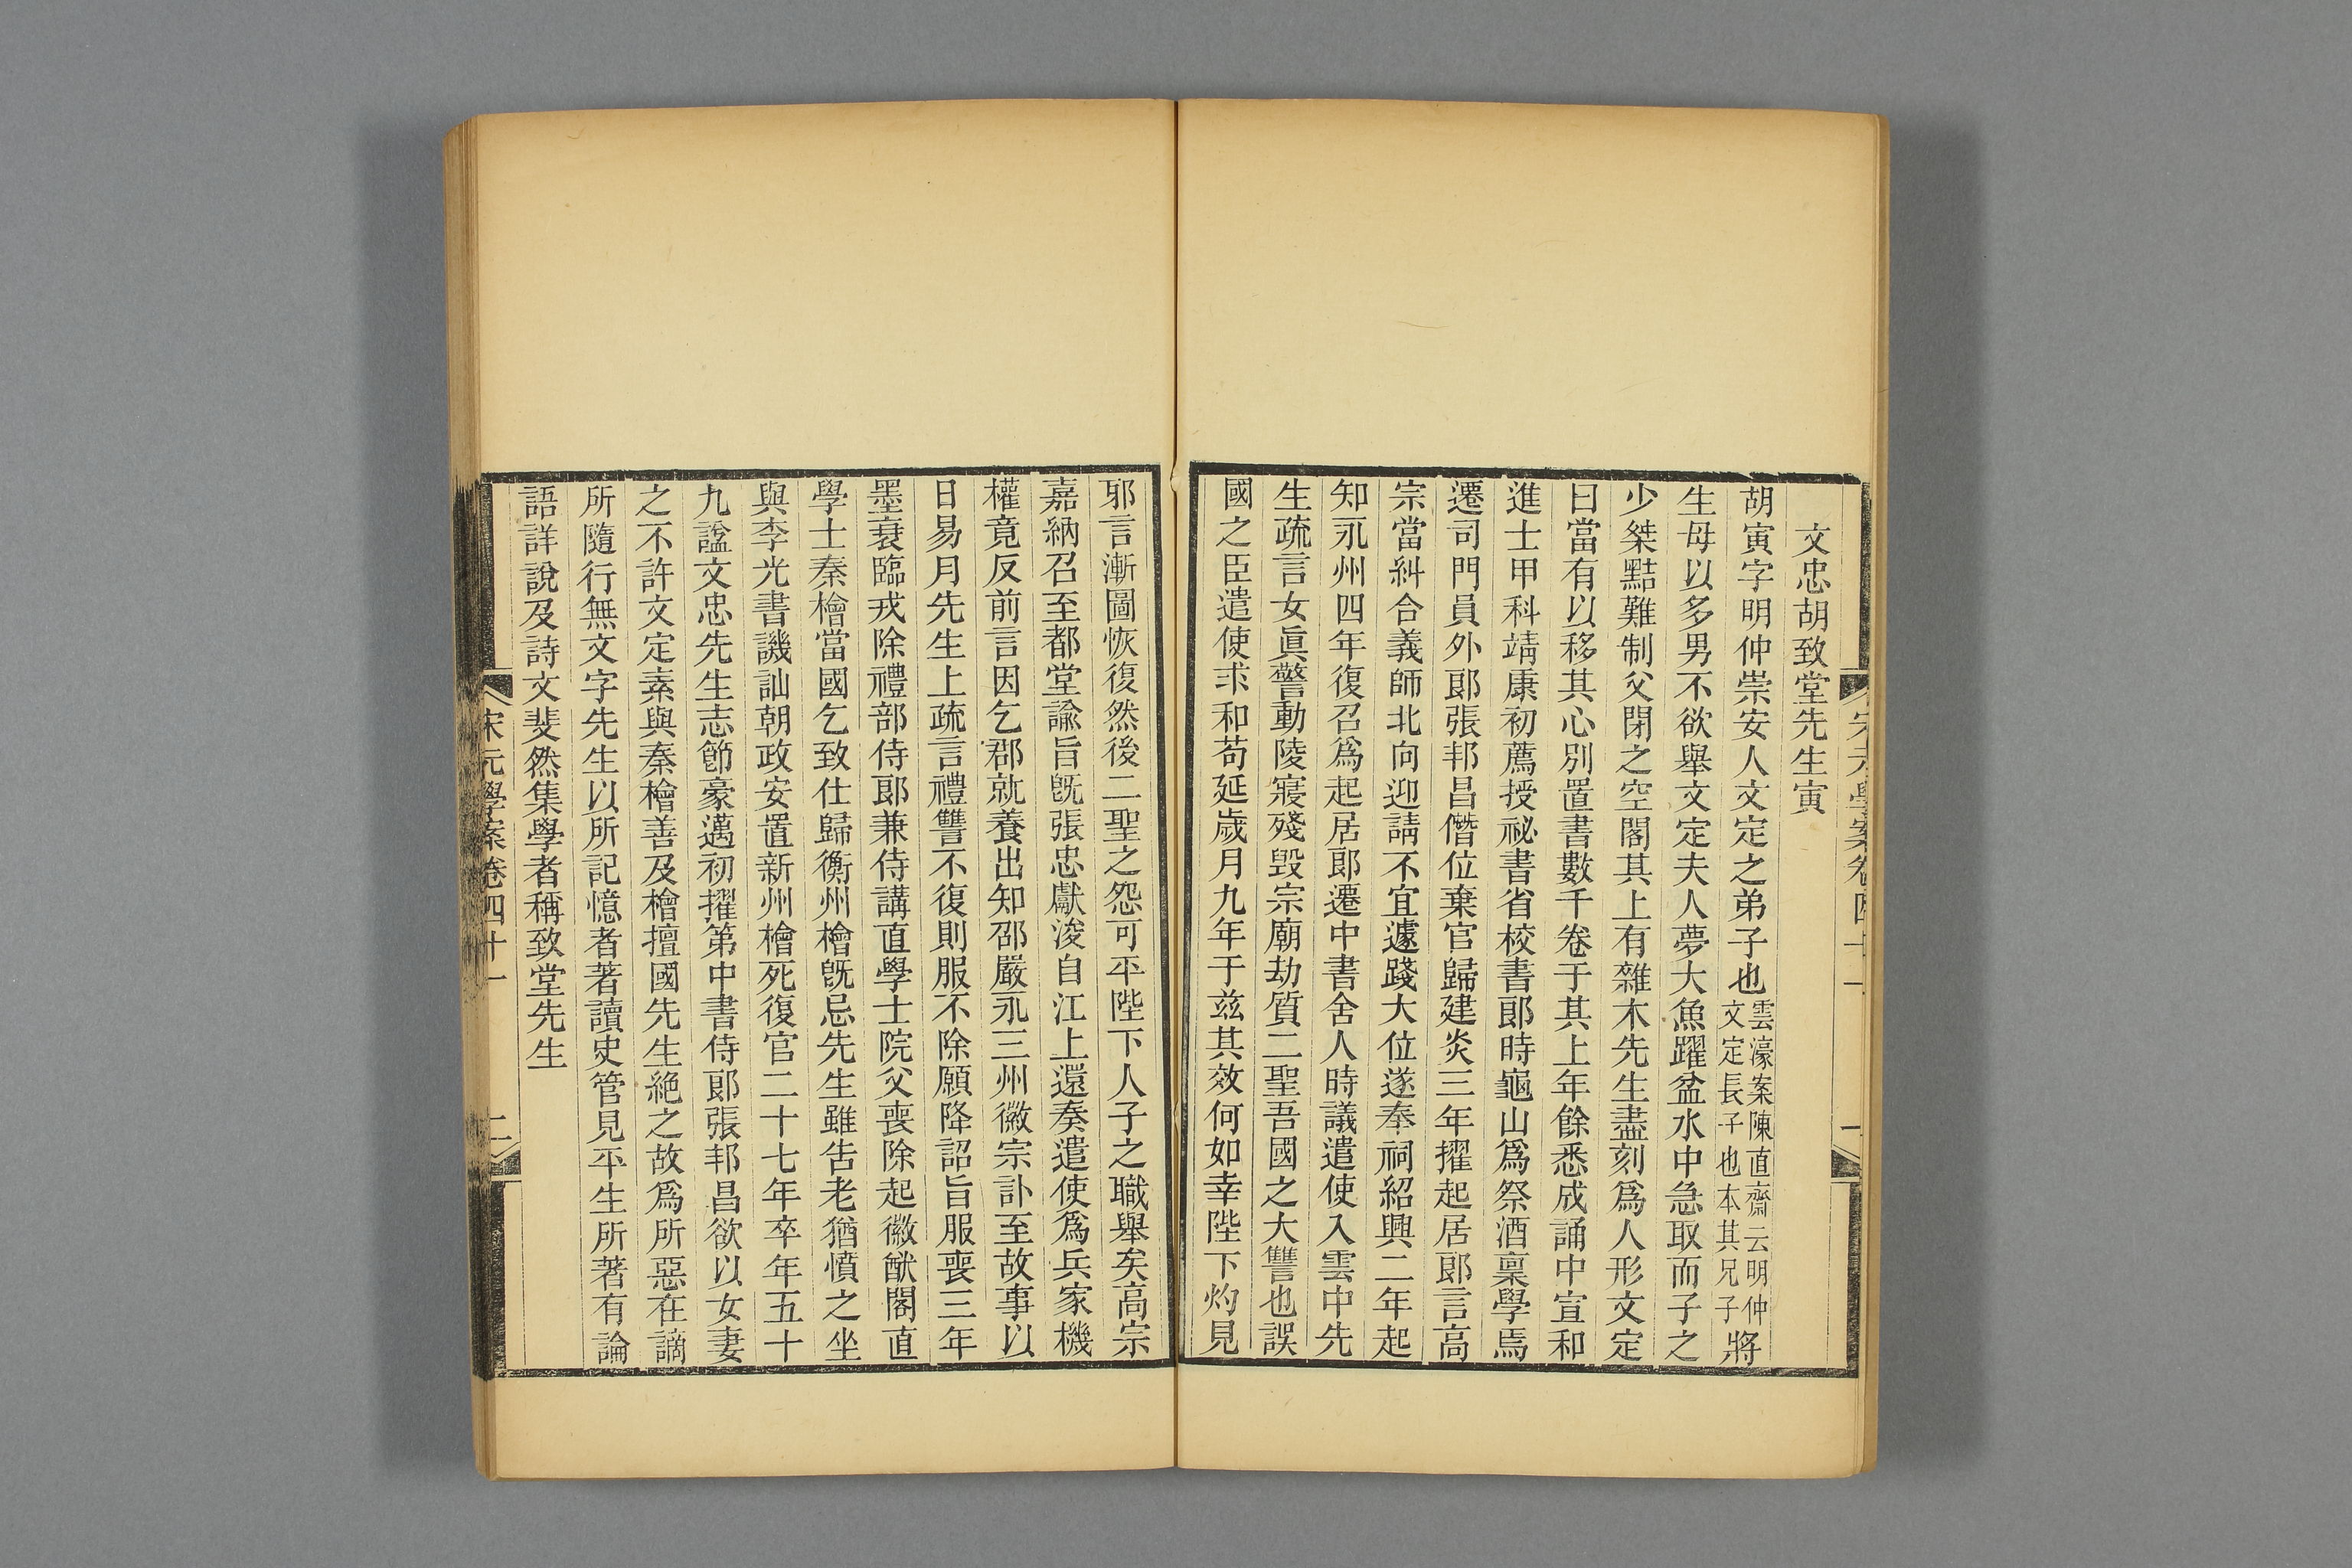 文忠胡致堂先生寅
胡寅字明仲崇安人文定之弟子也雲濠案陳直齋云明仲文定長子也本其兄子將
生母以多男不欲舉文定夫人夢大魚躍盆水中急取而子之
少桀黠難制父閉之空閣其上有雜木先生盡刻爲人形文定
曰當有以移其心別置書數千卷于其上年餘悉成誦中宣和
進士甲科靖康初薦授祕書省校書郎時龜山爲祭酒稟學焉
遷司門員外郎張邦昌僭位棄官歸建炎三年擢起居郎言高
宗當糾合義師北向迎請不宜遽踐大位遂奉祠紹興二年起
知永州四年復召爲起居郎遷中書舍人時議遣使入雲中先
生疏言女眞驚動陵寢殘毀宗廟劫質二聖吾國之大讐也誤
國之臣遣使求和苟延歲月九年于兹其效何如幸陛下灼見
邪言漸圖恢復然後二聖之怨可平陛下人子之職舉矣高宗
嘉納召至都堂諭旨旣張忠獻浚自江上還奏遣使爲兵家機
權竟反前言因乞郡就養出知邵嚴永三州徽宗訃至故事以
日易月先生上疏言禮讐不復則服不除願降詔旨服喪三年
墨衰臨戎除禮部侍郎兼侍講直學士院父喪除起徽猷閣直
學士秦檜當國乞致仕歸衡州檜旣忌先生雖告老猶憤之坐
與李光書譏訕朝政安置新州檜死復官二十七年卒年五十
九諡文忠先生志節豪邁初擢第中書侍郎張邦昌欲以女妻
之不許文定素與秦檜善及檜擅國先生絶之故爲所惡在謫
所隨行無文字先生以所記憶者著讀史管見平生所著有論
語詳說及詩文斐然集學者稱致堂先生
宋元學案卷四十一
二